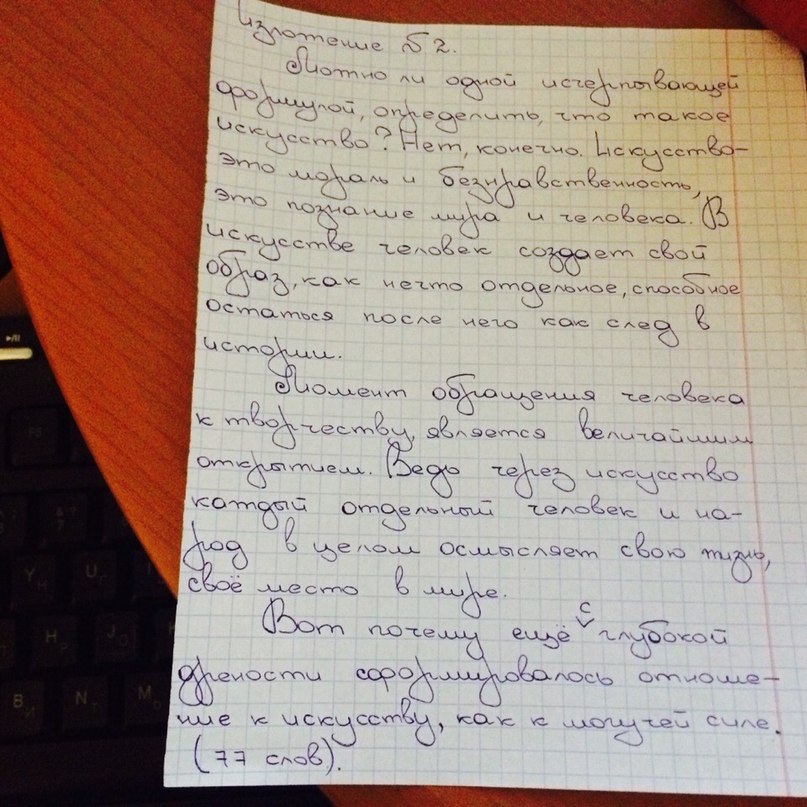 Изложение №2.
Можно ли одной исчерпывающей
формулой, определить, что такое
искусство? Нет, конечно. Искусство-
это мораль и безнравственность,
это познание мира и человека. В
искусстве человек создает свой
образ, как нечто отдельное, способное
остаться после него как след в
истории.
Момент обращения человека
к творчеству, является величайшим
открытием. Ведь через искусство
каждый отдельный человек и на-
род в целом осмысляет свою жизнь,
своё место в мире.
Вот почему ещё с глубокой
древности сформировалось отноше-
ние к искусству, как к могучей силе.
(77 слов).
F5
6
7
Y Н
U Г
H Р
J О
B И
N Т
M Ь